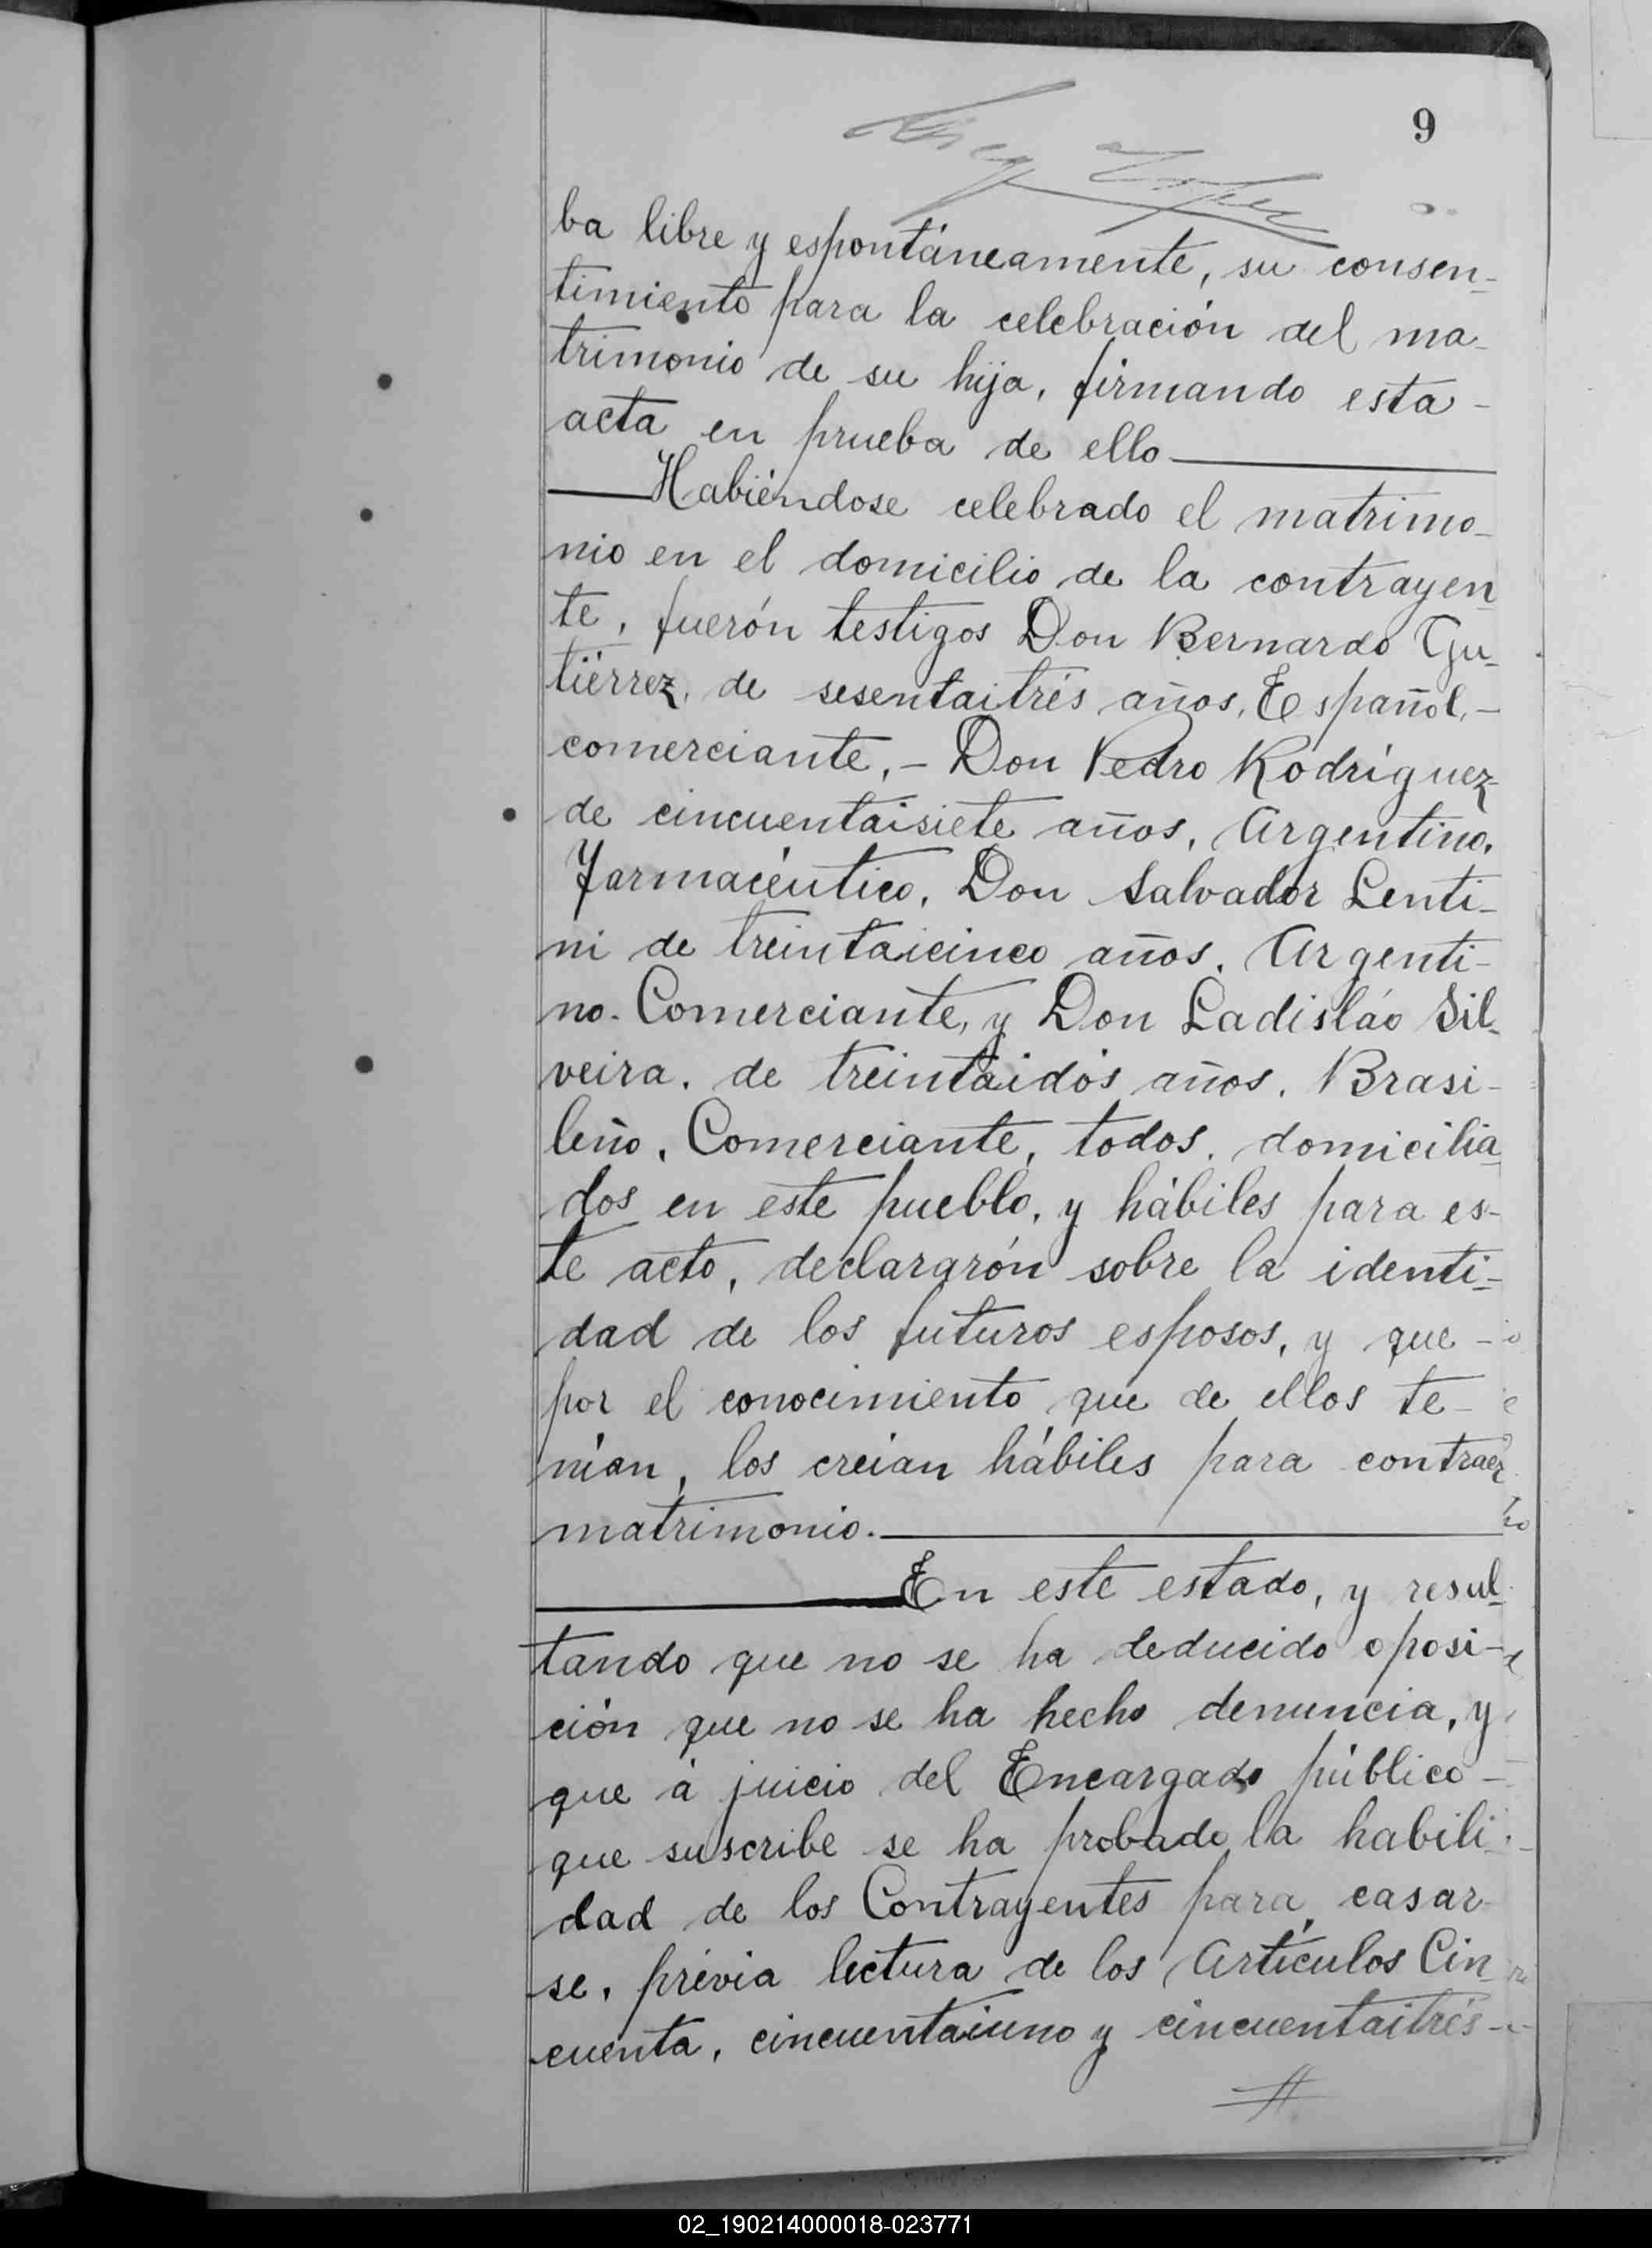 9
ba libre y espontáneamente, su consen-
timiento para la celebración del ma-
trimonio de su hija, firmando esta -
acta en prueba de ello
Habiéndose celebrado el matrimo-
nio en el domicilio de la contrayen
te, fuerón testigos Don Bernardo Gu-
tiérrez, de sesentaitrés años, Español, -
comerciante, - Don Pedro Rodríguez
de cincuentaisiete años, Argentino,
Farmacéutico, Don Salvador Lenti-
ni de treintaicinco años, Argenti-
no. Comerciante, y Don Ladisláo Sil-
veira, de treintaidós años, Brasi-
leño, Comerciante, todos, domicilia
dos en este pueblo, y hábiles para es-
te acto, declararón sobre la identi-
dad de los futuros esposos, y que -
por el conocimiento que de ellos te-
nían, los creían hábiles para contraer
matrimonio.
En este estado, y resul-
tando que no se ha deducido oposi-
ción que no se ha hecho denuncia, y
que á juicio del Encargado público -
que suscribe se ha probado la habili-
dad de los Contrayentes para casar
se, prévia lectura de los Artículos Cin
cuenta, cincuentaiuno y cincuentaitrés -
02_190214000018-023771